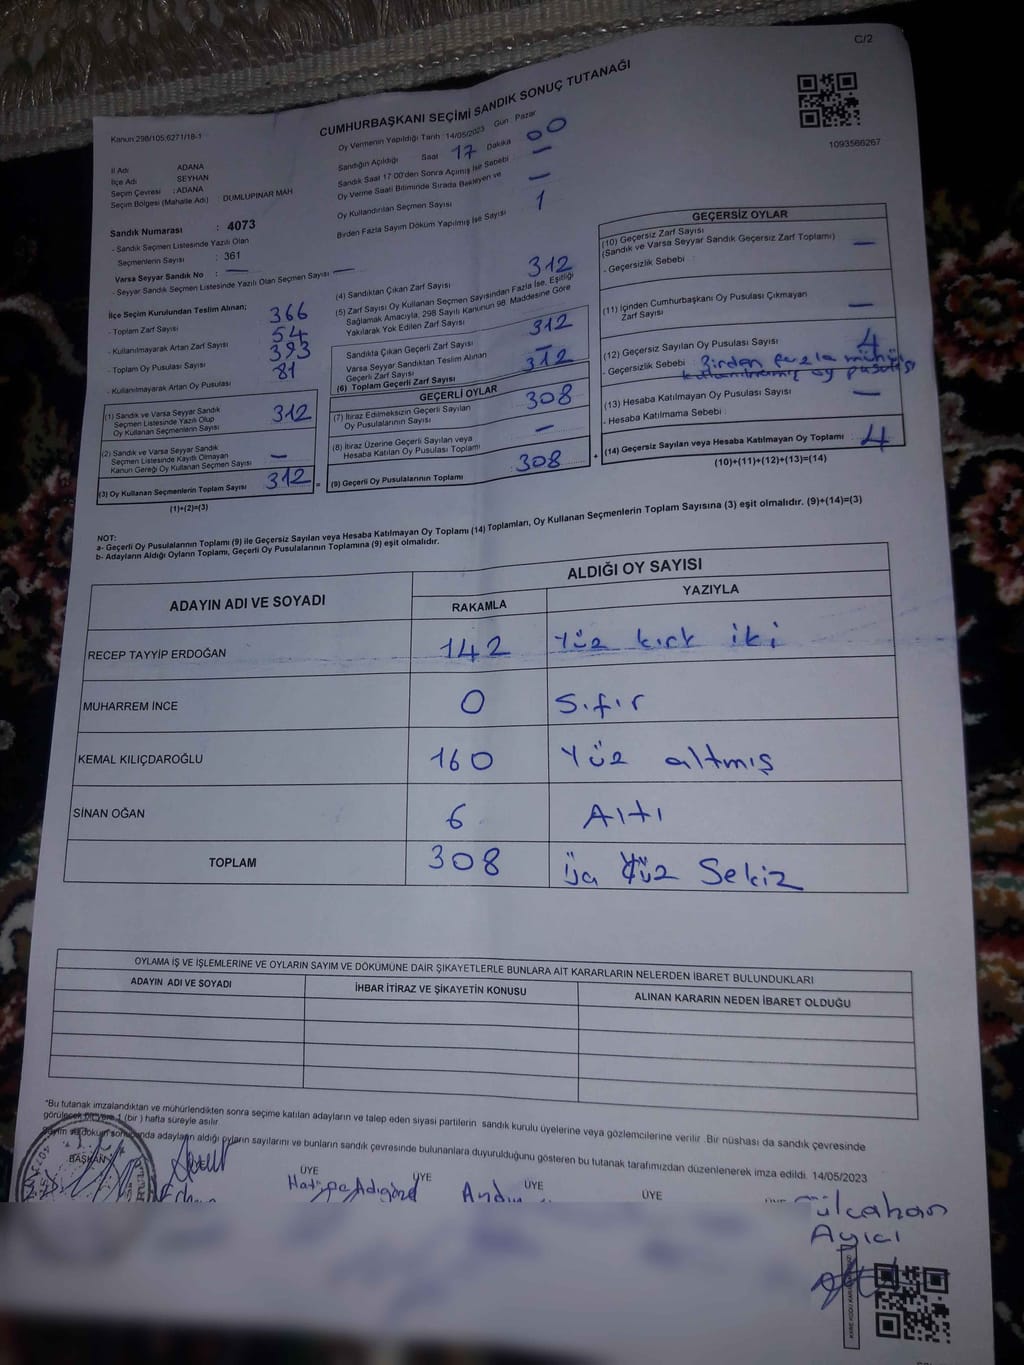 C/2
CUMHURBAŞKANI SEÇİMİ SANDIK SONUÇ TUTANAĞI
Kanun 298/105;6271/18-1
1093566267
İl Adı ADANA
İlçe Adı SEYHAN
Seçim Çevresi : ADANA
Seçim Bölgesi (Mahalle Adı) : DUMLUPINAR MAH
Sandık Numarası : 4073
- Sandık Seçmen Listesinde Yazılı Olan
Seçmenlerin Sayısı : 361
Varsa Seyyar Sandık No : —
- Seyyar Sandık Seçmen Listesinde Yazılı Olan Seçmen Sayısı —
Oy Vermenin Yapıldığı Tarih : 14/05/2023 Gün : Pazar
Sandığın Açıldığı Saat 17 Dakika 00
Sandık Saat 17:00'den Sonra Açılmış İse Sebebi —
Oy Verme Saati Bitiminde Sırada Bekleyen ve
Oy Kullandırılan Seçmen Sayısı —
Birden Fazla Sayım Döküm Yapılmış İse Sayısı 1
İlçe Seçim Kurulundan Teslim Alınan;
- Toplam Zarf Sayısı 366
- Kullanılmayarak Artan Zarf Sayısı 54
- Toplam Oy Pusulası Sayısı 393
- Kullanılmayarak Artan Oy Pusulası 81
(1) Sandık ve Varsa Seyyar Sandık
Seçmen Listesinde Yazılı Olup
Oy Kullanan Seçmenlerin Sayısı 312
(2) Sandık ve Varsa Seyyar Sandık
Seçmen Listesinde Kayıtlı Olmayan
Kanun Gereği Oy Kullanan Seçmen Sayısı —
(3) Oy Kullanan Seçmenlerin Toplam Sayısı 312
(1)+(2)=(3)
(4) Sandıktan Çıkan Zarf Sayısı 312
(5) Zarf Sayısı Oy Kullanan Seçmen Sayısından Fazla İse, Eşitliği
Sağlamak Amacıyla, 298 Sayılı Kanunun 98. Maddesine Göre
Yakılarak Yok Edilen Zarf Sayısı
Sandıkta Çıkan Geçerli Zarf Sayısı 312
Varsa Seyyar Sandıktan Teslim Alınan
Geçerli Zarf Sayısı —
(6) Toplam Geçerli Zarf Sayısı 312
GEÇERLİ OYLAR
(7) İtiraz Edilmeksizin Geçerli Sayılan
Oy Pusulalarının Sayısı 308
(8) İtiraz Üzerine Geçerli Sayılan veya
Hesaba Katılan Oy Pusulası Toplamı —
(9) Geçerli Oy Pusulalarının Toplamı 308
GEÇERSİZ OYLAR
(10) Geçersiz Zarf Sayısı
(Sandık ve Varsa Seyyar Sandık Geçersiz Zarf Toplamı) —
- Geçersizlik Sebebi :
(11) İçinden Cumhurbaşkanı Oy Pusulası Çıkmayan
Zarf Sayısı —
(12) Geçersiz Sayılan Oy Pusulası Sayısı 4
- Geçersizlik Sebebi : Birden fazla mühür
kullanılmış oy pusulası
(13) Hesaba Katılmayan Oy Pusulası Sayısı —
- Hesaba Katılmama Sebebi :
(14) Geçersiz Sayılan veya Hesaba Katılmayan Oy Toplamı 4
(10)+(11)+(12)+(13)=(14)
NOT:
a- Geçerli Oy Pusulalarının Toplamı (9) ile Geçersiz Sayılan veya Hesaba Katılmayan Oy Toplamı (14) Toplamları, Oy Kullanan Seçmenlerin Toplam Sayısına (3) eşit olmalıdır. (9)+(14)=(3)
b- Adayların Aldığı Oyların Toplamı, Geçerli Oy Pusulalarının Toplamına (9) eşit olmalıdır.
ADAYIN ADI VE SOYADI
ALDIĞI OY SAYISI
RAKAMLA YAZIYLA
RECEP TAYYİP ERDOĞAN 142 Yüz kırk iki
MUHARREM İNCE 0 Sıfır
KEMAL KILIÇDAROĞLU 160 Yüz altmış
SİNAN OĞAN 6 Altı
TOPLAM 308 Üç Yüz Sekiz
OYLAMA İŞ VE İŞLEMLERİNE VE OYLARIN SAYIM VE DÖKÜMÜNE DAİR ŞİKAYETLERLE BUNLARA AİT KARARLARIN NELERDEN İBARET BULUNDUKLARI
ADAYIN ADI VE SOYADI İHBAR İTİRAZ VE ŞİKAYETİN KONUSU ALINAN KARARIN NEDEN İBARET OLDUĞU
*Bu tutanak imzalandıktan ve mühürlendikten sonra seçime katılan adayların ve talep eden siyasi partilerin sandık kurulu üyelerine veya gözlemcilerine verilir. Bir nüshası da sandık çevresinde
görülecek bir yere 1 (bir) hafta süreyle asılır.
Sayım ve döküm sonucunda adayların aldığı oyların sayılarını ve bunların sandık çevresinde bulunanlara duyurulduğunu gösteren bu tutanak tarafımızdan düzenlenerek imza edildi. 14/05/2023
BAŞKAN ÜYE ÜYE ÜYE ÜYE
Gülcahan
Ayıcı